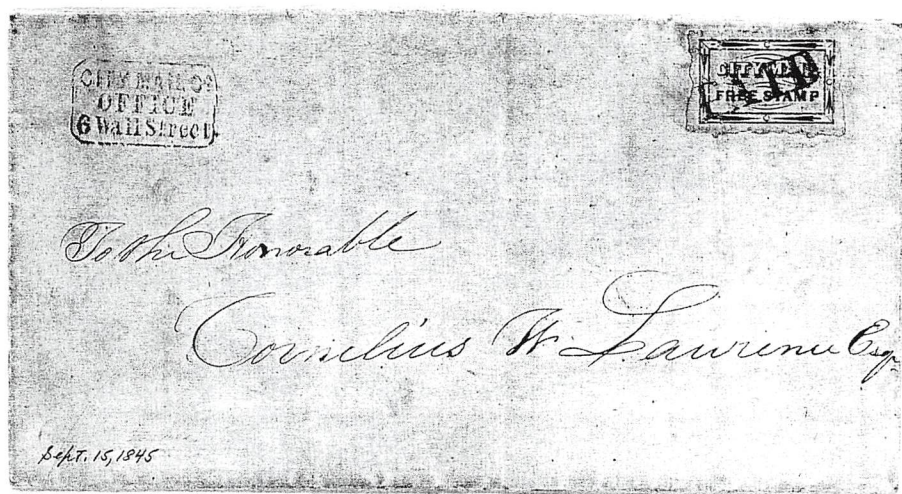 CITY MAIL Co
OFFICE
6 Wall Street.
CITY MAIL
FREE STAMP
PAID
To the Honorable
Cornelius W. Lawrence Esqr
Sept. 15, 1845